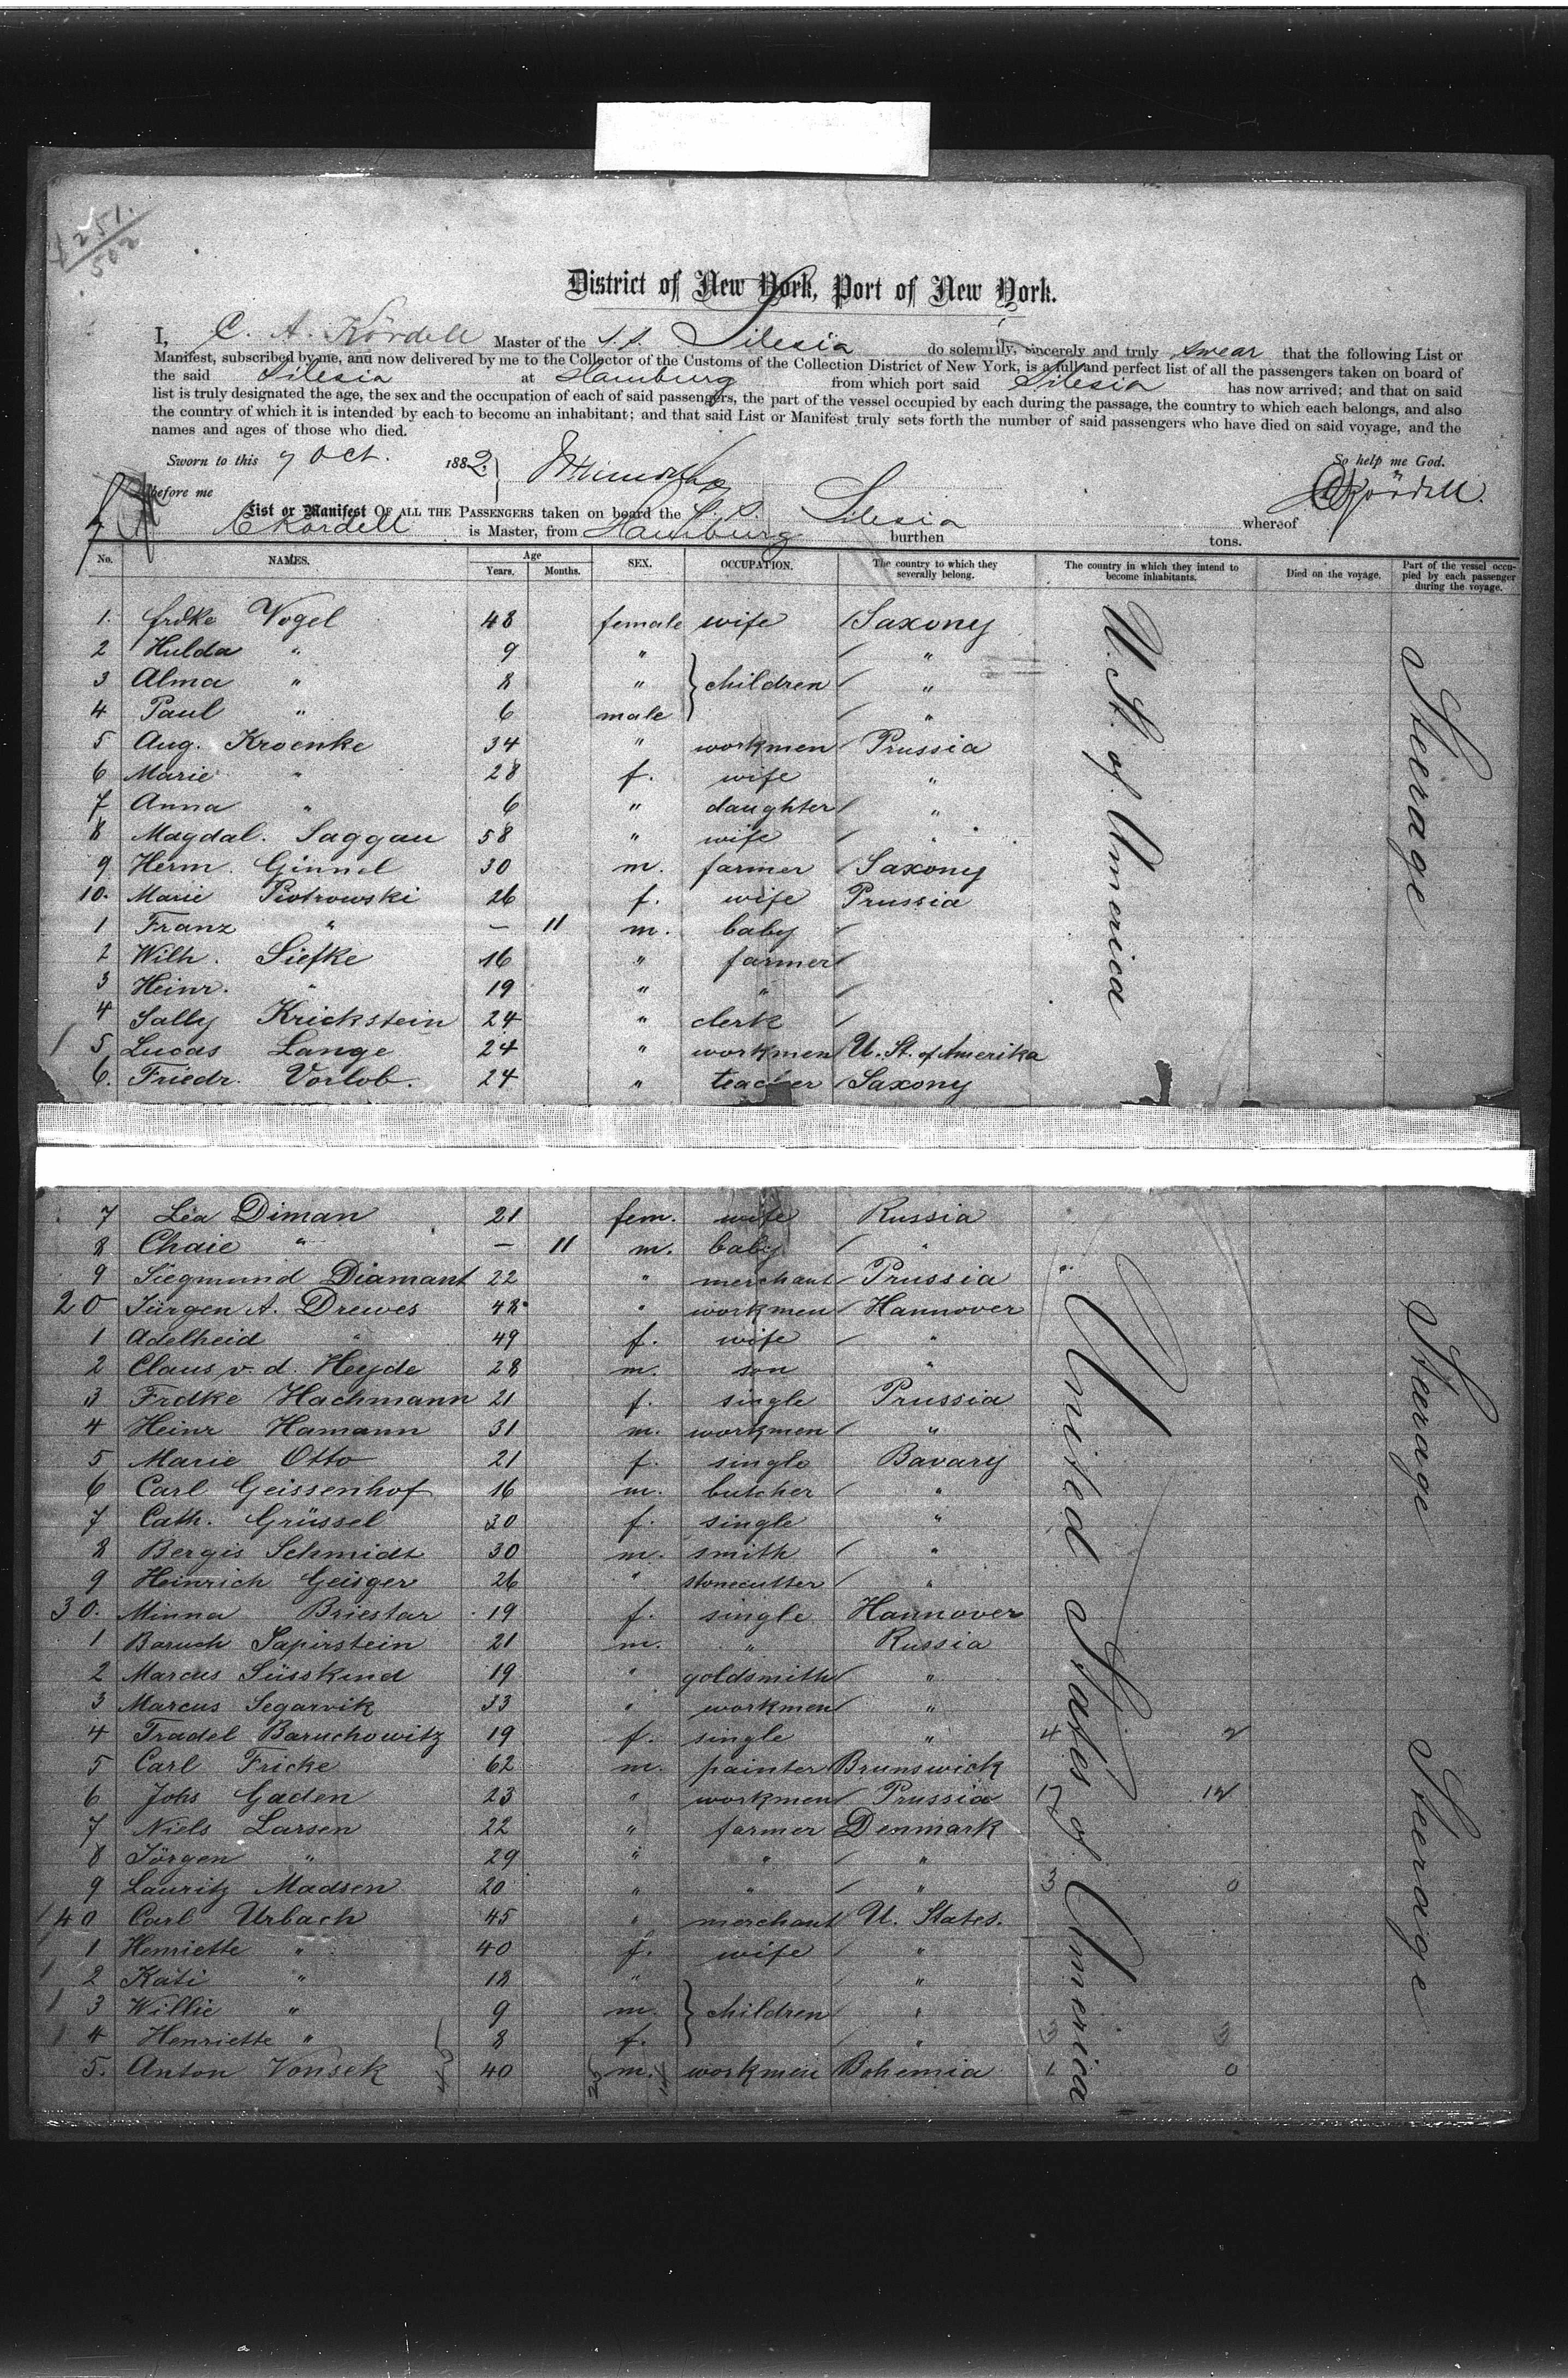 251.
502
District of New York, Port of New York.
I, C. A. Kördell Master of the S. S. Silesia do solemnly, sincerely and truly swear that the following List or
Manifest, subscribed by me, and now delivered by me to the Collector of the Customs of the Collection District of New York, is a full and perfect list of all the passengers taken on board of
the said Silesia at Hamburg from which port said Silesia has now arrived; and that on said
list is truly designated the age, the sex and the occupation of each of said passengers, the part of the vessel occupied by each during the passage, the country to which each belongs, and also
the country of which it is intended by each to become an inhabitant; and that said List or Manifest truly sets forth the number of said passengers who have died on said voyage, and the
names and ages of those who died.
Sworn to this 7 Oct. 1882. So help me God.
before me CKördell.
List or Manifest OF ALL THE PASSENGERS taken on board the S. S. Silesia whereof
CKördell is Master, from Hamburg burthen tons.
No. NAMES. Age Years. Months. SEX. OCCUPATION. The country to which they severally belong. The country in which they intend to become inhabitants. Died on the voyage. Part of the vessel occupied by each passenger during the voyage.
1. Frdke Vogel 48 female wife Saxony
2 Hulda " 9 " "
3 Alma " 8 " children "
4 Paul " 6 male "
5 Aug. Kroenke 34 " workmen Prussia
6 Marie " 28 f. wife "
7 Anna " 6 " daughter "
8 Magdal. Saggau 58 " wife "
9 Herm. Ginnel 30 m. farmer Saxony
10. Marie Piotrowski 26 f. wife Prussia
1 Franz " — 11 m. baby
2 Wilh. Siefke 16 " farmer
3 Heinr. " 19 " "
4 Sally Krickstein 24 " clerk
5 Lucas Lange 24 " workmen U. St. of Amerika
6. Friedr. Vorlob. 24 " teacher Saxony
U. St. of America
Steerage
7 Lea Diman 21 fem. wife Russia
8 Chaie " — 11 m. baby "
9 Siegmund Diamant 22 " merchant Prussia
20 Jürgen A. Drewes 48 " workmen Hannover
1 Adelheid " 49 f. wife "
2 Claus v. d. Heyde 28 m. son "
3 Frdke Hachmann 21 f. single Prussia
4 Heinr Hamann 31 m. workmen "
5 Marie Otto 21 f. single Bavary
6 Carl Geissenhof 16 m. butcher "
7 Cath. Grüssel 30 f. single "
8 Bergis Schmidt 30 m. smith "
9 Heinrich Geisger 26 " stonecutter "
30. Minna Briestar 19 f. single Hannover
1 Baruch Sapirstein 21 m. " Russia
2 Marcus Süsskind 19 " goldsmith "
3 Marcus Segarvik 33 " workmen "
4 Tradel Baruchowitz 19 f. single " 4 2
5 Carl Fricke 62 m. painter Brunswick
6 Johs Gaden 23 " workmen Prussia 17 12
7 Niels Larsen 22 " farmer Denmark
8 Jörgen " 29 " " "
9 Lauritz Madsen 20 " " " 3 0
40 Carl Urbach 45 " merchant U. States.
1 Henriette " 40 f. wife "
2 Käti " 18 " "
3 Willie " 9 m. children "
4 Henriette " 8 f. " 3 3
5. Anton Vonsek 40 m. workmen Bohemia 1 0
United States of America
Steerage
Steerage